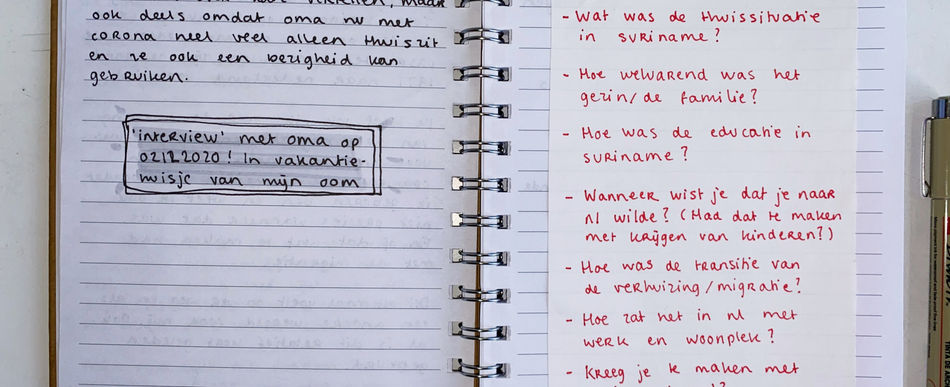 vertellen, maar
ook deels omdat oma nu met
corona heel veel alleen thuis zit
en ze ook een bezigheid kan
gebruiken.
'interview' met oma op
02.12.2020! In vakantie-
huisje van mijn oom
- Wat was de thuissituatie
in suriname?
- Hoe welvarend was het
gezin/de familie?
- Hoe was de educatie in
suriname?
- Wanneer wist je dat je naar
nl wilde? (Had dat te maken
met krijgen van kinderen?)
- Hoe was de transitie van
de verhuizing/migratie?
- Hoe zat het in nl met
werk en woonplek?
- Kreeg je te maken met